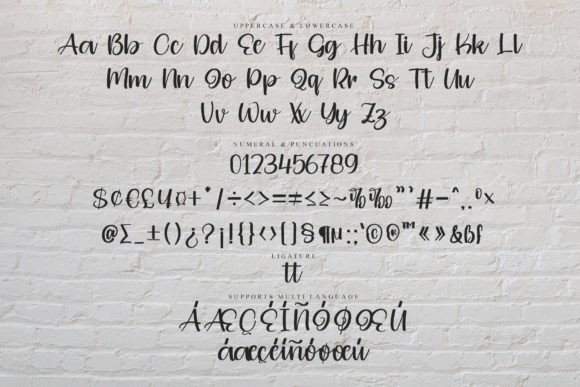 UPPERCASE & LOWERCASE
Aa Bb Cc Dd Ee Ff Gg Hh Ii Jj Kk Ll
Mm Nn Oo Pp Qq Rr Ss Tt Uu
Vv Ww Xx Yy Zz
NUMERAL & PUNCUATIONS
0123456789
$¢€£¥¤+*/÷<>=±≤≥~%‰"'#-^.,ºx
@∑_±()¿?¡!{}‹›[]§¶µ:;'©®™«»&ßf
LIGATURE
tt
SUPPORTS MULTI LANGUAGE
ÁÆÇÉÍÑÓØŒÚ
áæçéíñóøœú